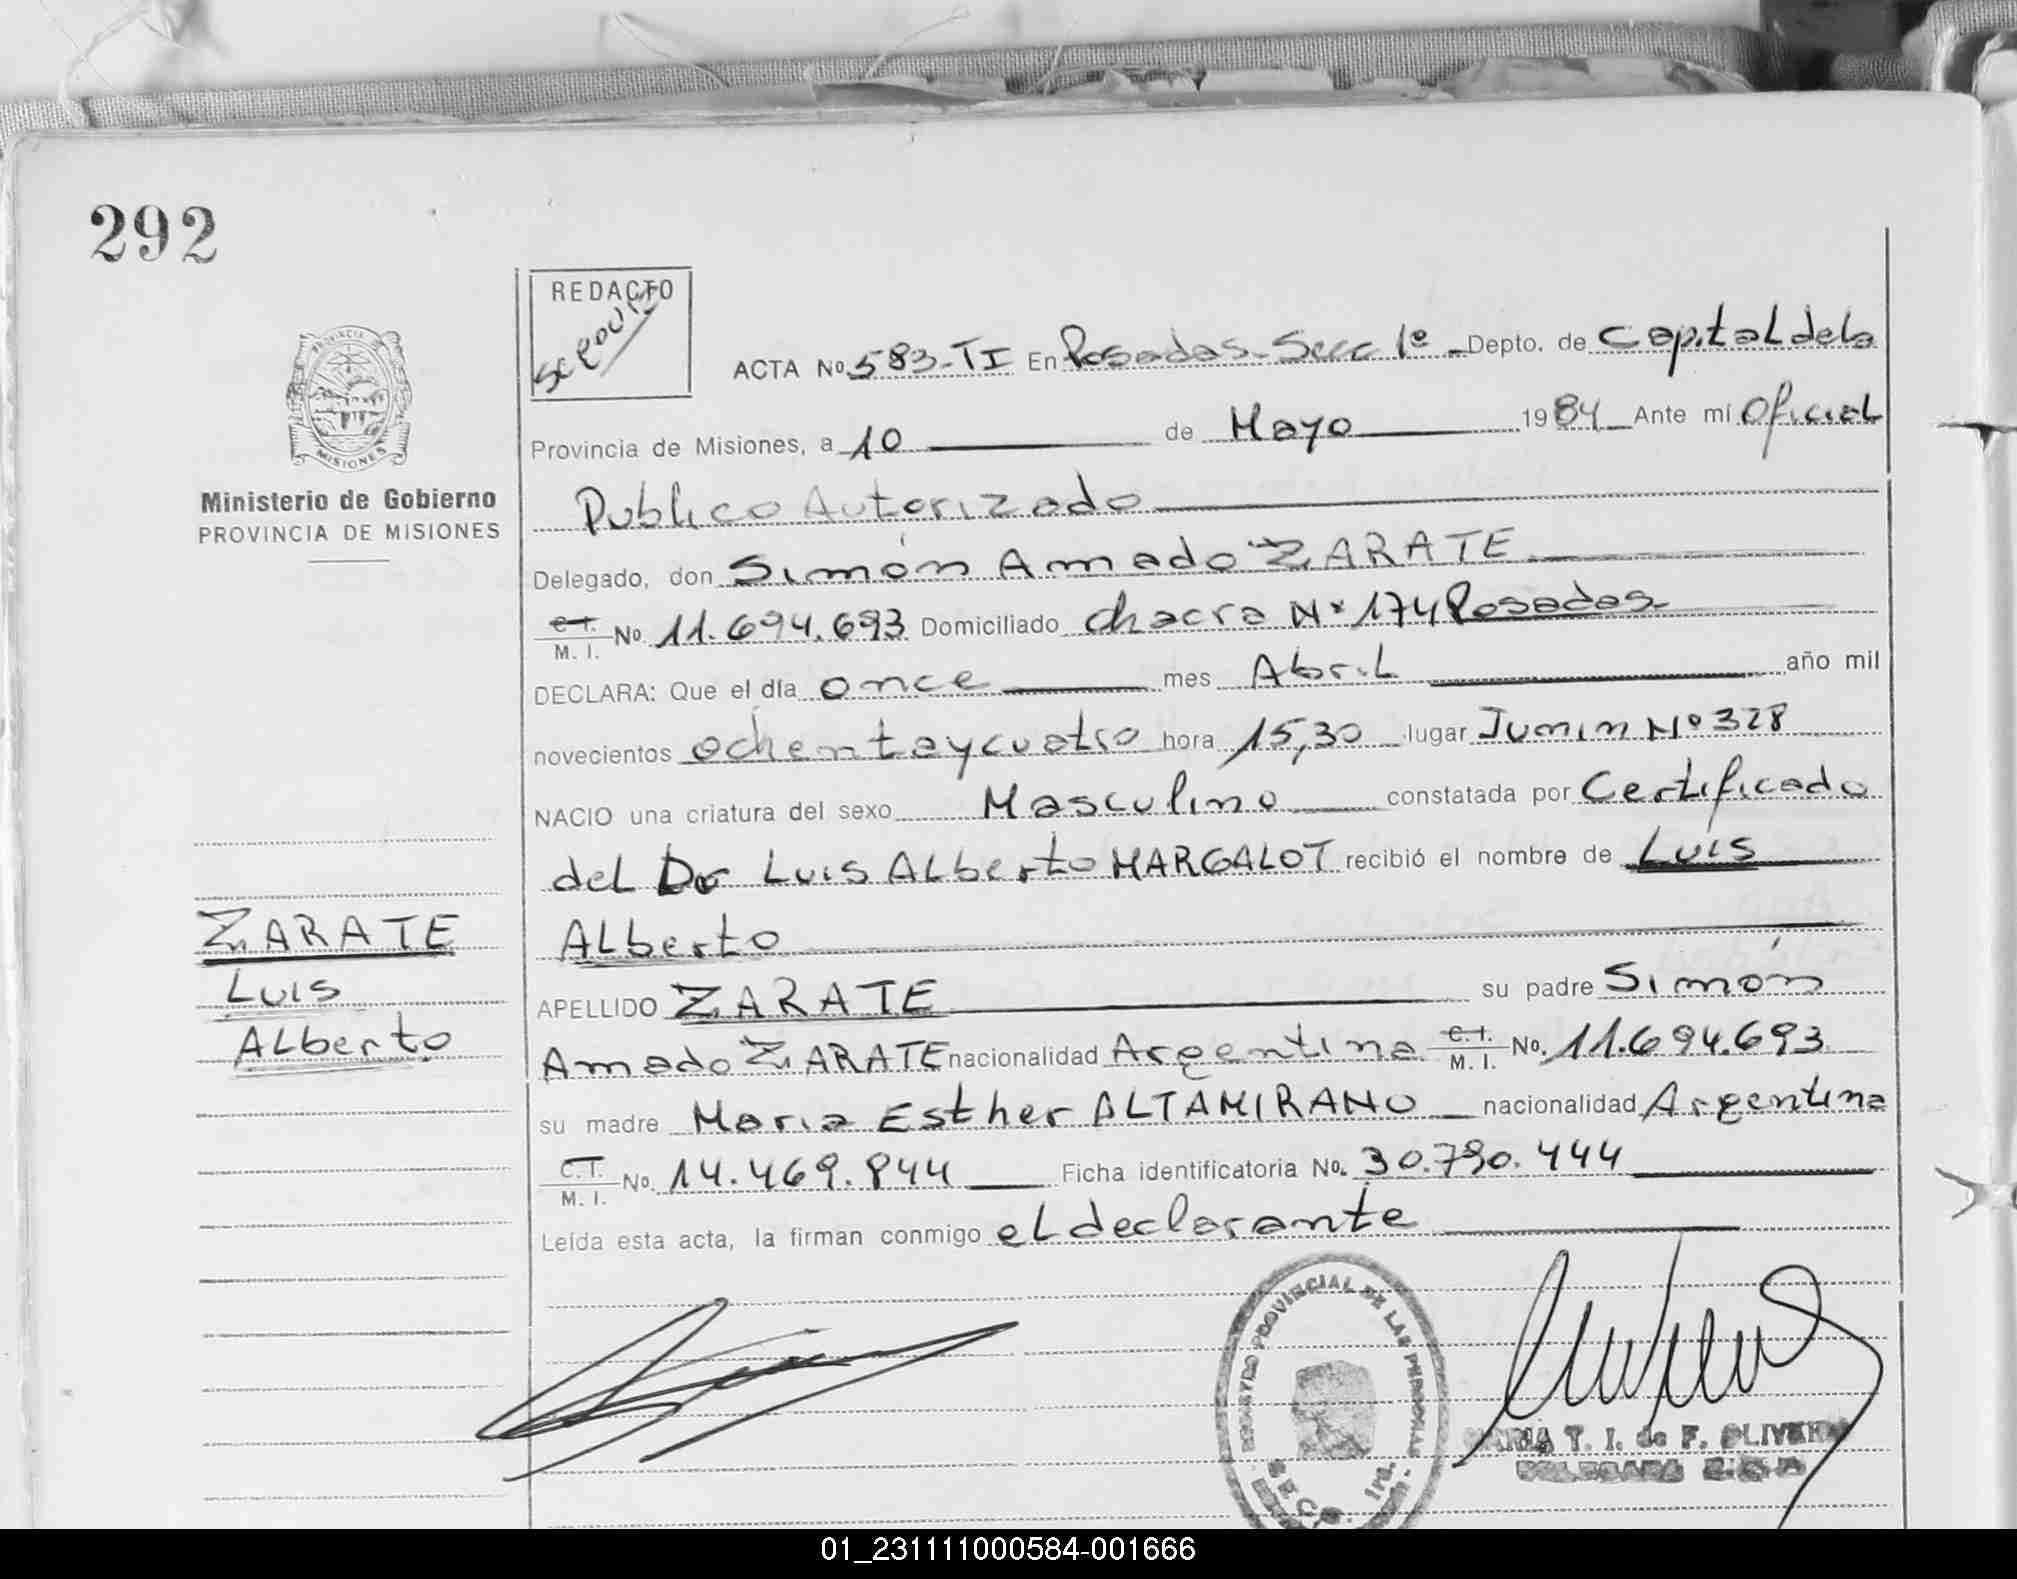 292
REDACTO
ACTA No. 583-TI En Posadas-Secc 1º Depto. de Capital de la
Provincia de Misiones, a 10 de Mayo 1984 Ante mí Oficial
Publico Autorizado
Delegado, don Simón Amado ZARATE
C.I. M. I. No. 11.694.693 Domiciliado Chacra Nº 174 Posadas
DECLARA: Que el día once mes Abril año mil
novecientos ochentaycuatro hora 15,30 lugar Junin Nº 328
NACIO una criatura del sexo Masculino constatada por Certificado
del Dr Luis Alberto MARGALOT recibió el nombre de Luis
Alberto
APELLIDO ZARATE su padre Simón
Amado ZARATE nacionalidad Argentina C.I. M. I. No. 11.694.693
su madre Maria Esther ALTAMIRANO nacionalidad Argentina
C.I. M. I. No. 14.469.844 Ficha identificatoria No. 30.790.444
Leída esta acta, la firman conmigo el declarante
PROVINCIA DE
MISIONES
Ministerio de Gobierno
PROVINCIA DE MISIONES
ZARATE
Luis
Alberto
REGISTRO PROVINCIAL DE LAS PERSONAS
SECC. 1ra.
MARIA T. I. de F. OLIVEIRA
01_231111000584-001666